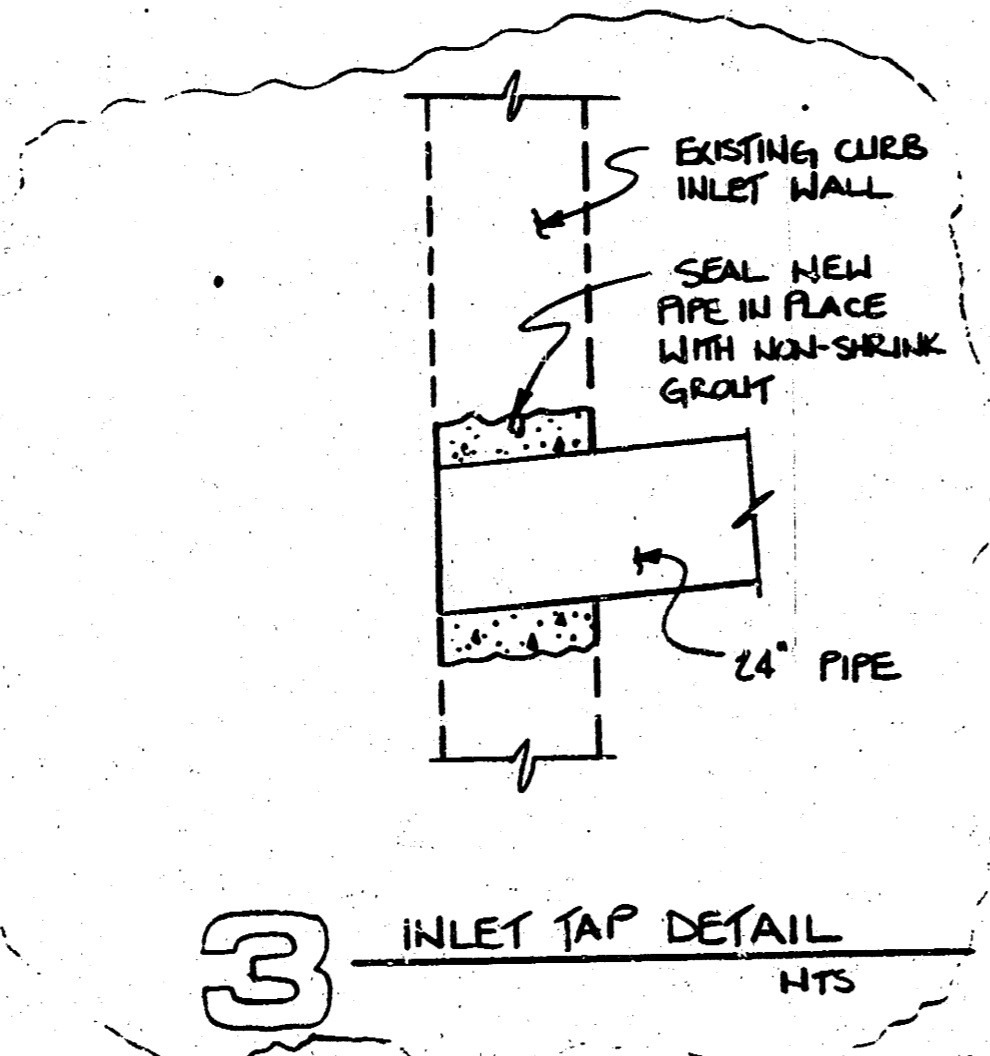 EXISTING CURB
INLET WALL
SEAL NEW
PIPE IN PLACE
WITH NON-SHRINK
GROUT
24" PIPE
3
INLET TAP DETAIL
NTS